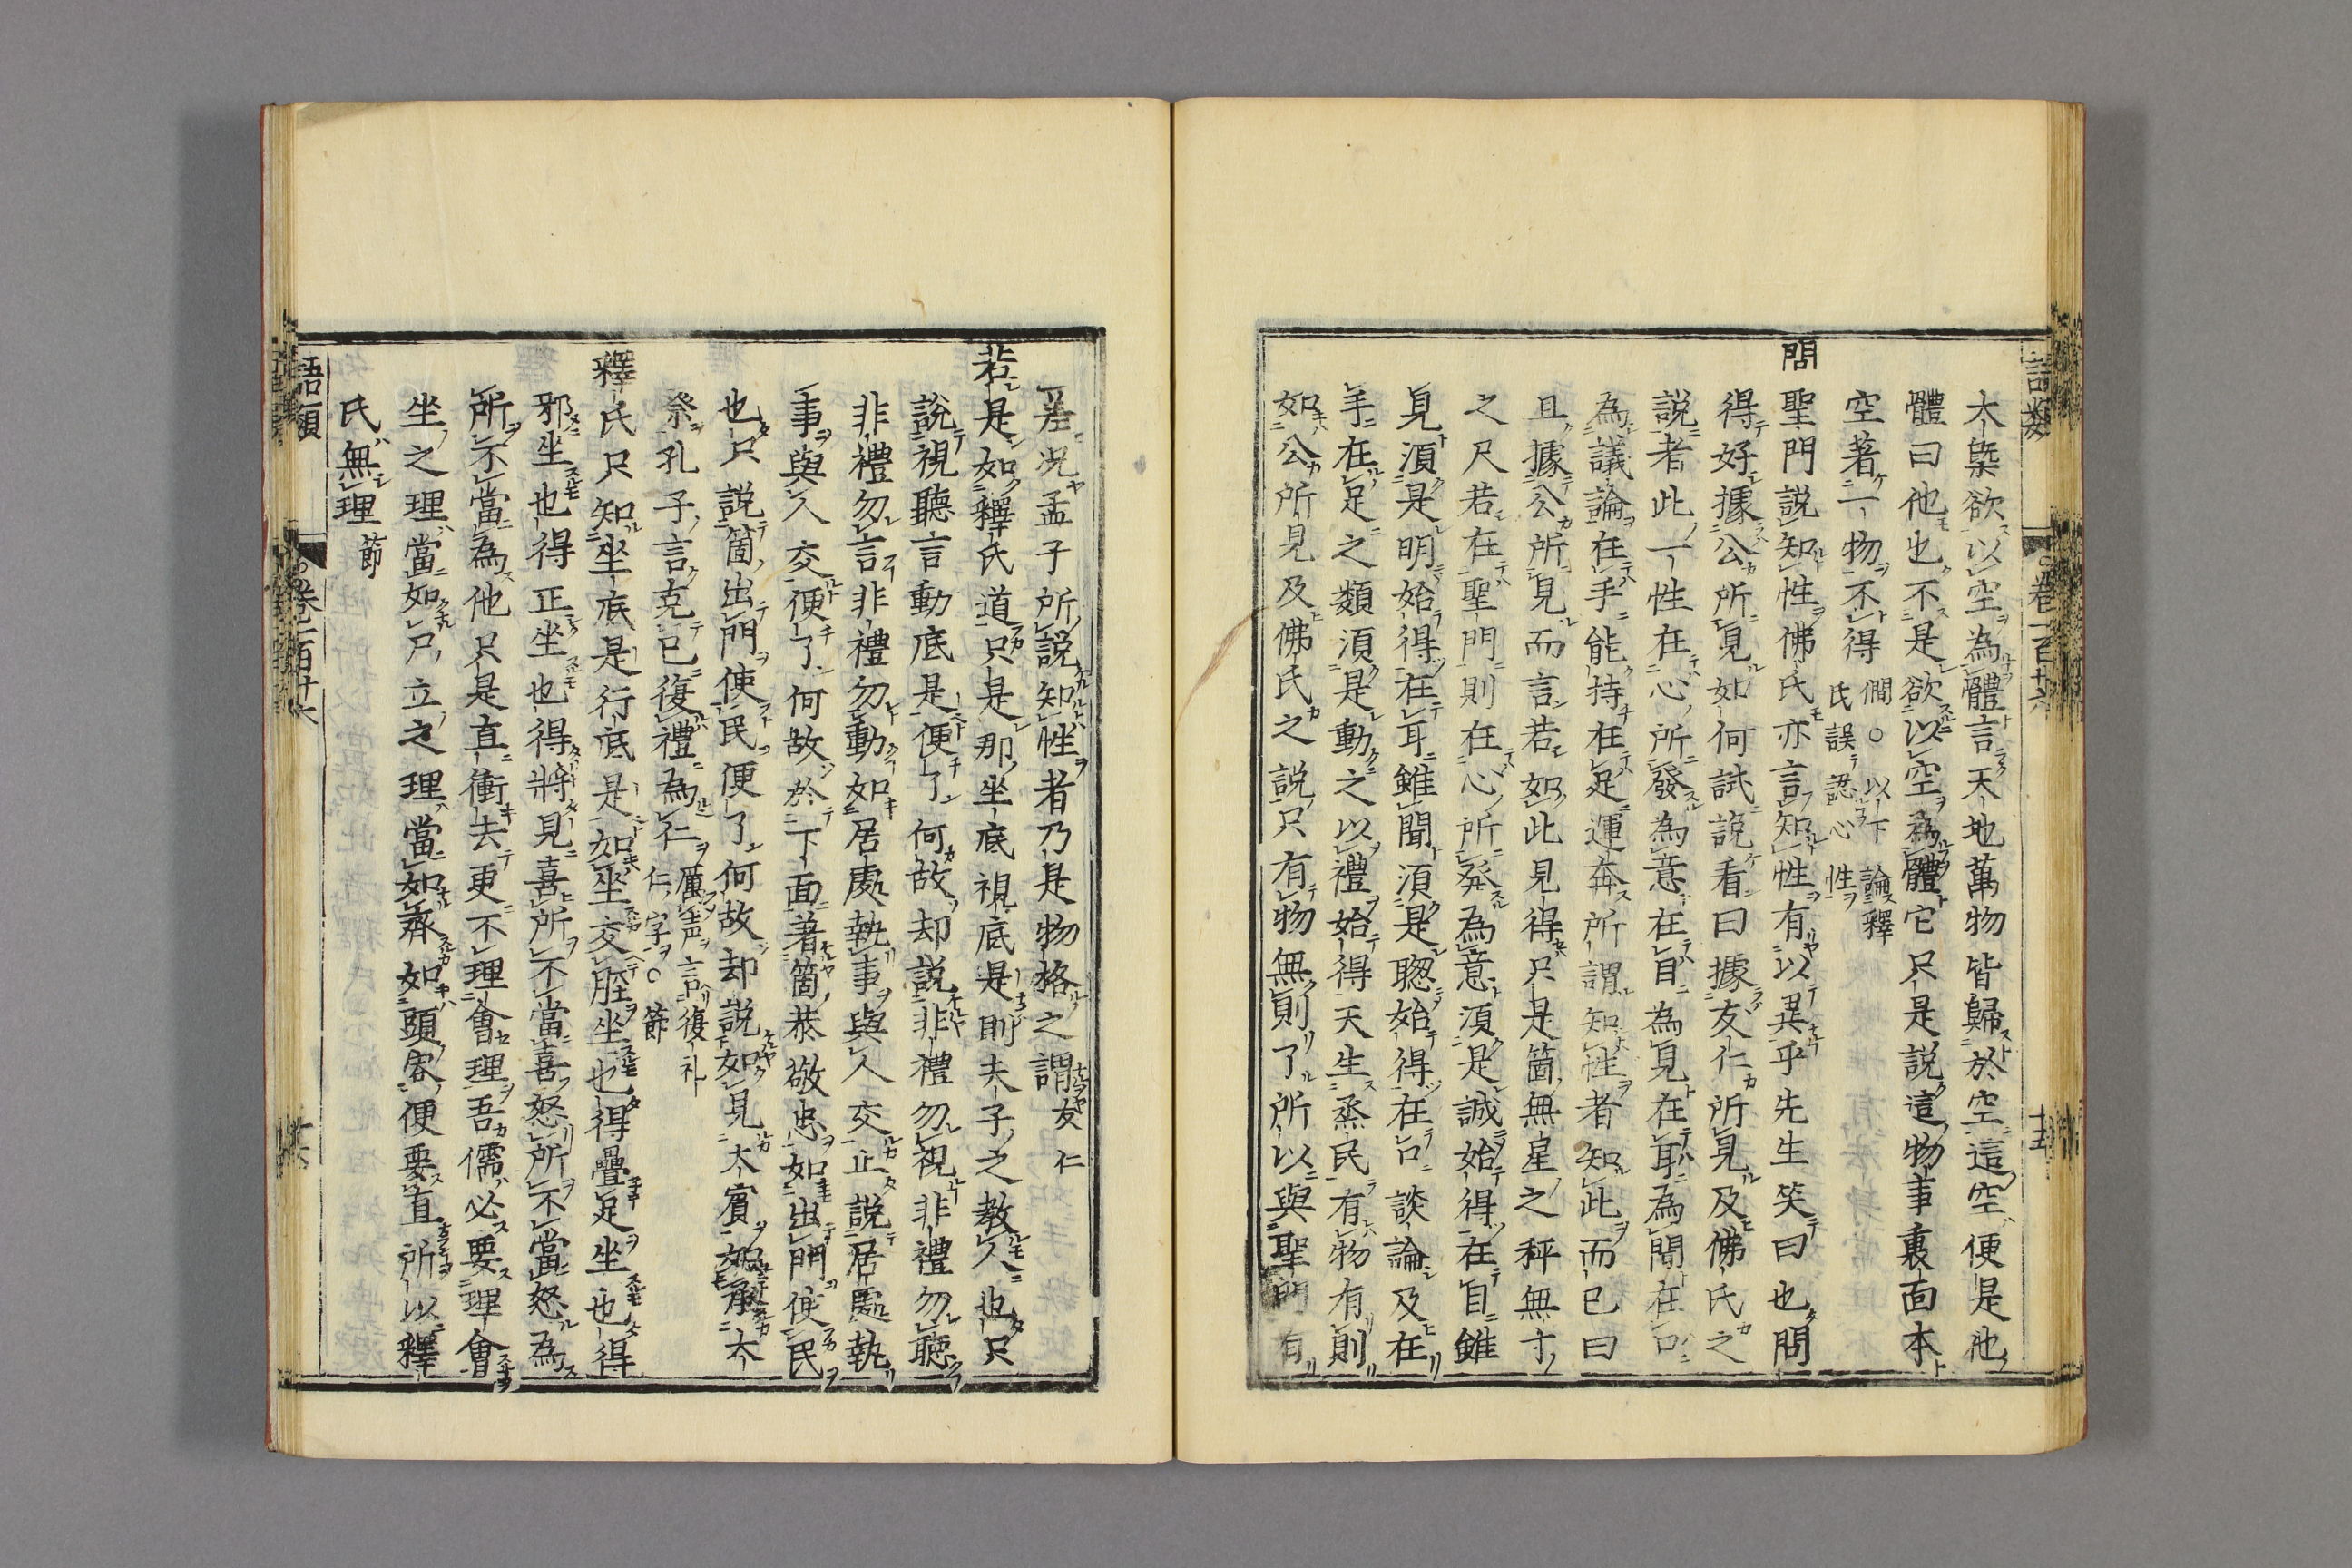 大槩欲以空為體言天地萬物皆歸於空這空便是他
體曰他也不是欲以空為體它只是說這物事裏面本
空著一物不得 僩○以下論釋氏誤認心性
問聖門説知性佛氏亦言知性有以異乎先生笑曰也問
得好據公所見如何試説看曰據友仁所見及佛氏之
説者此一性在心所發為意在目為見在耳為聞在口
為議論在手能持在足運奔所謂知性者知此而已曰
且據公所見而言若如此見得只是箇無星之秤無寸
之尺若在聖門則在心所發為意須是誠始得在目雖
見須是明始得在耳雖聞須是聦始得在口談論及在
手在足之類須是動之以禮始得天生烝民有物有則
如公所見及佛氏之説只有物無則了所以與聖門有
差況孟子所説知性者乃是物格之謂 友仁
若是如釋氏道只是那坐底視底是則夫子之教人也只
說視聽言動底是便了何故却説非禮勿視非禮勿聽
非禮勿言非禮勿動如居處執事與人交止説居處執
事與人交便了何故於下面著箇恭敬忠如出門使民
也只説箇出門使民便了何故却説如見大賓如承大
祭孔子言克己復禮為仁 厲声言復礼仁字○節
釋氏只知坐底是行底是如坐交脛坐也得疊足坐也得
邪坐也得正坐也得將見喜所不當喜怒所不當怒為
所不當為他只是直衝去更不理會理吾儒必要理會
坐之理當如尸立之理當如齊如頭容便要直所以釋
氏無理 節
語類 卷一百廿六